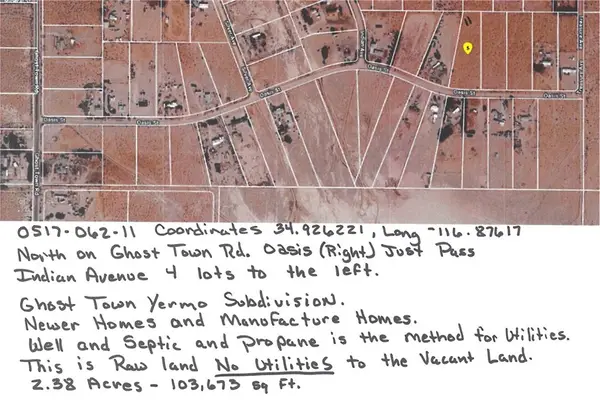 Ghost Town Rd
Ghost Town Rd
Oasis St
Oasis St
Oasis St
Oasis St
Oasis St
0517-062-11 Coordinates 34.926221, Long -116.87617
North on Ghost Town Rd. Oasis (Right) Just Pass
Indian Avenue 4 lots to the left.
Ghost Town Yermo Subdivision.
Newer Homes and Manufacture Homes.
Well and Septic and Propane is the method for Utilities.
This is Raw land No Utilities to the Vacant Land.
2.38 Acres - 103,673 sq Ft.